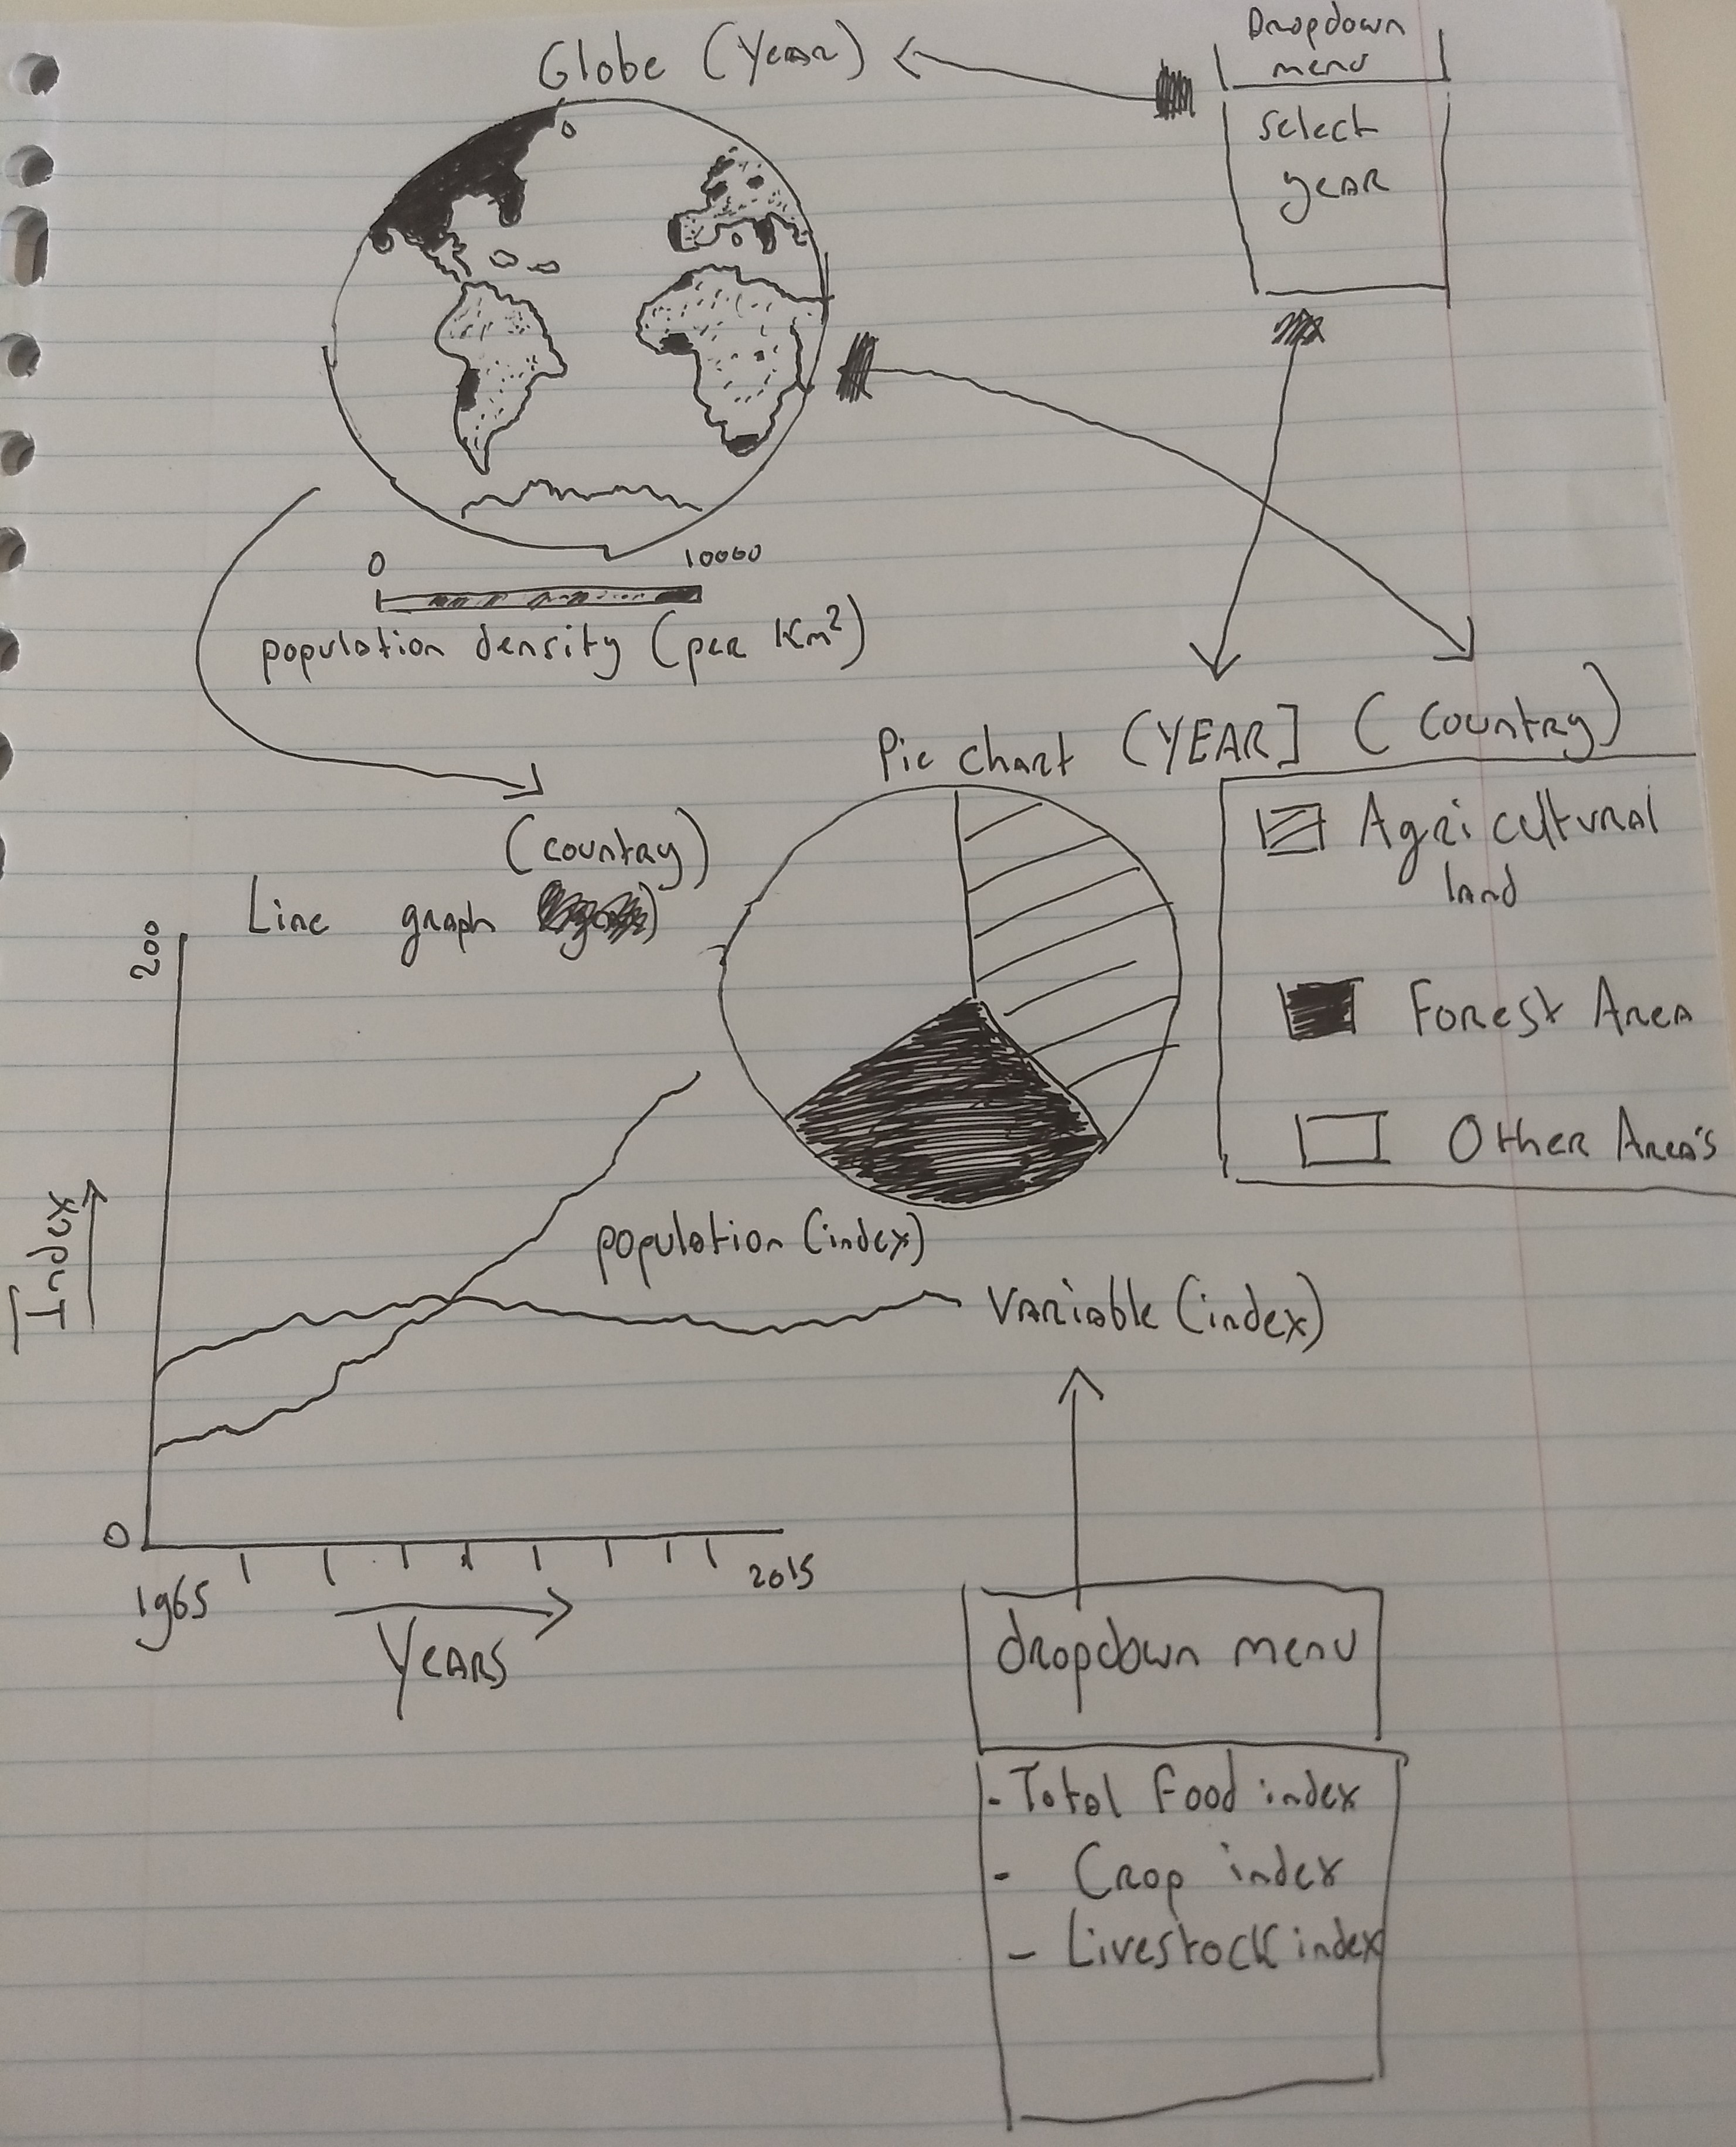 Globe (Year)
Dropdown
menu
select
year
0
10000
population density (per Km²)
Pie chart (YEAR] (Country)
Agricultural
land
Forest Area
Other Area's
(country)
Line graph
200
Index
population (index)
Variable (index)
0
1965
2015
Years
dropdown menu
- Total Food index
- Crop index
- Livestock index